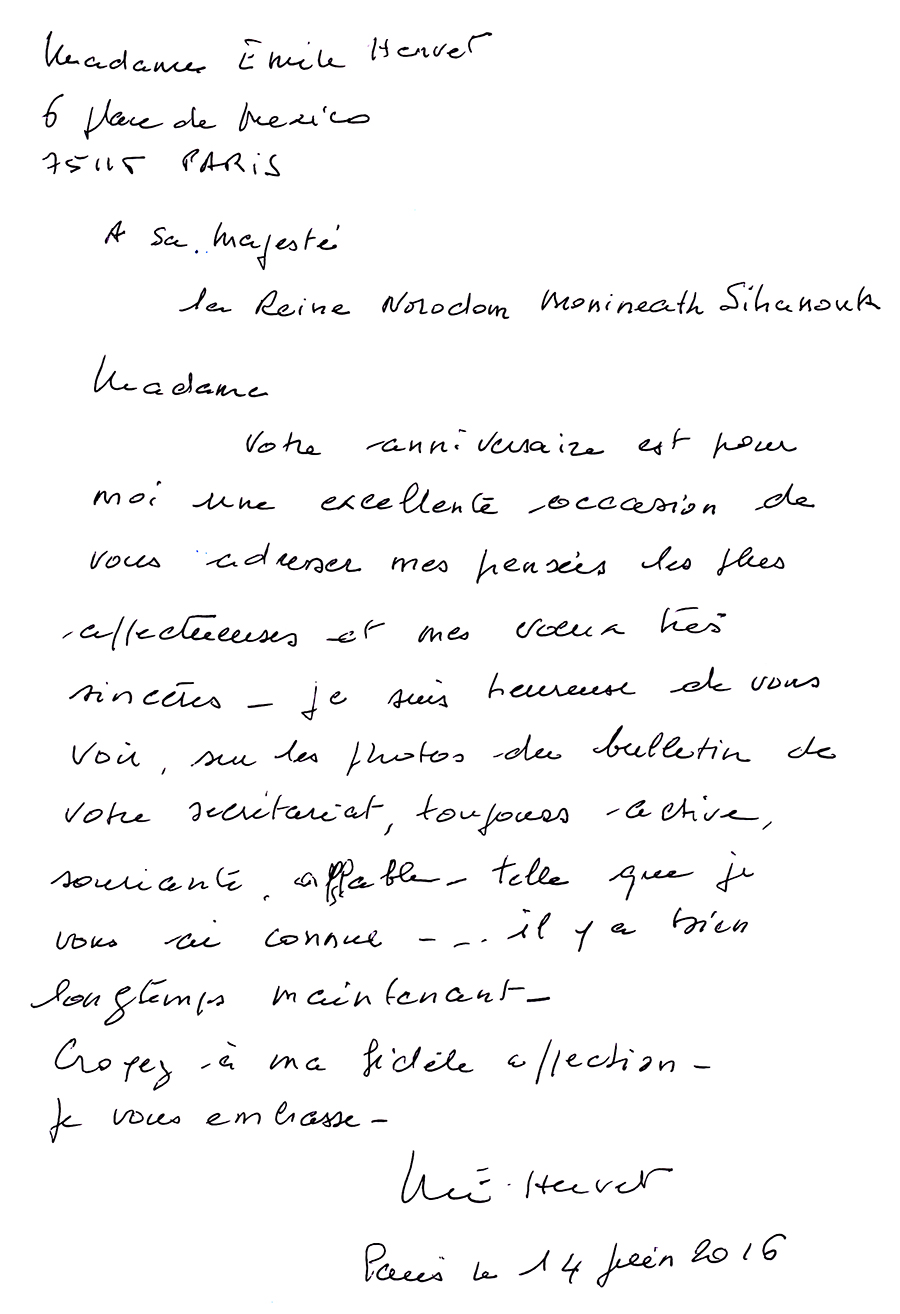 Madame Émile Hervet
6 place de Mexico
75115 PARIS
A Sa Majesté
la Reine Norodom Monineath Sihanouk
Madame
Votre anniversaire est pour
moi une excellente occasion de
vous adresser mes pensées les plus
affectueuses et mes vœux très
sincères – je suis heureuse de vous
voir, sur les photos du bulletin de
votre secrétariat, toujours active,
souriante, affable – telle que je
vous ai connue – ... il y a bien
longtemps maintenant –
Croyez à ma fidèle affection –
Je vous embrasse –
Hervet
Paris le 14 juin 2016